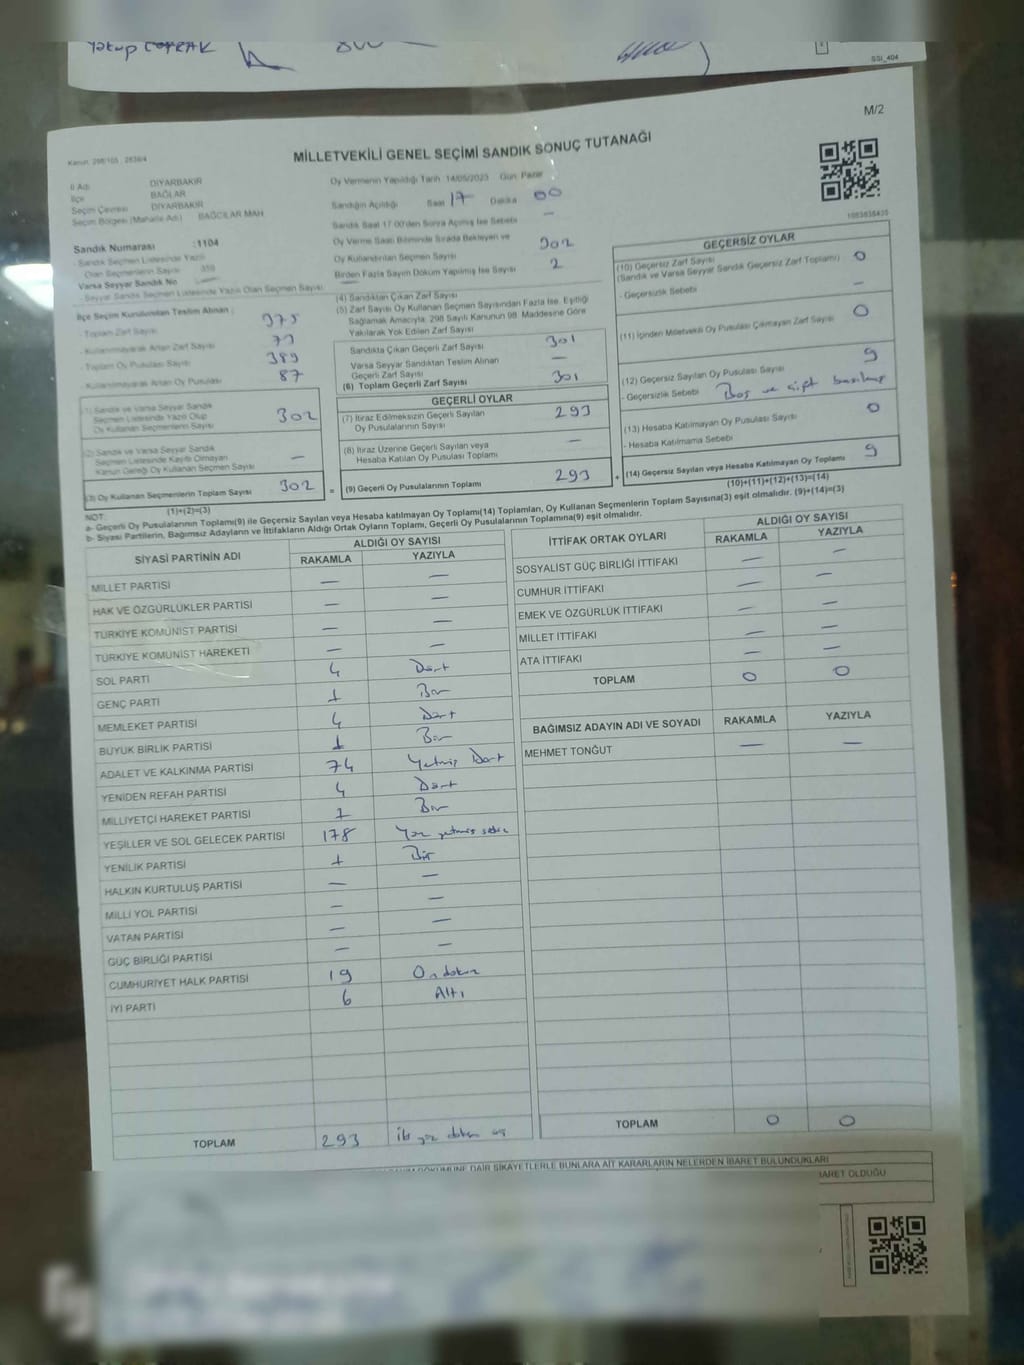 Yakup TOPRAK
SSI_404
M/2
Kanun: 298/105 ; 2839/4
MİLLETVEKİLİ GENEL SEÇİMİ SANDIK SONUÇ TUTANAĞI
İl Adı DİYARBAKIR
İlçe BAĞLAR
Seçim Çevresi DİYARBAKIR
Seçim Bölgesi (Mahalle Adı) BAĞCILAR MAH.
Sandık Numarası :1104
- Sandık Seçmen Listesinde Yazılı
Olan Seçmenlerin Sayısı 359
Varsa Seyyar Sandık No
- Seyyar Sandık Seçmen Listesinde Yazılı Olan Seçmen Sayısı
İlçe Seçim Kurulundan Teslim Alınan ;
- Toplam Zarf Sayısı 375
- Kullanılmayarak Artan Zarf Sayısı 73
- Toplam Oy Pusulası Sayısı 389
- Kullanılmayarak Artan Oy Pusulası 87
(1) Sandık ve Varsa Seyyar Sandık
Seçmen Listesinde Yazılı Olup
Oy Kullanan Seçmenlerin Sayısı 302
(2) Sandık ve Varsa Seyyar Sandık
Seçmen Listesinde Kayıtlı Olmayan
Kanun Gereği Oy Kullanan Seçmen Sayısı —
(3) Oy Kullanan Seçmenlerin Toplam Sayısı 302
(1)+(2)=(3)
Oy Vermenin Yapıldığı Tarih :14/05/2023 Gün: Pazar
Sandığın Açıldığı Saat 17 Dakika 00
Sandık Saat 17.00'den Sonra Açılmış İse Sebebi —
Oy Verme Saati Bitiminde Sırada Bekleyen ve
Oy Kullandırılan Seçmen Sayısı 302
Birden Fazla Sayım Döküm Yapılmış İse Sayısı 2
(4) Sandıktan Çıkan Zarf Sayısı
(5) Zarf Sayısı Oy Kullanan Seçmen Sayısından Fazla İse, Eşitliği
Sağlamak Amacıyla, 298 Sayılı Kanunun 98. Maddesine Göre
Yakılarak Yok Edilen Zarf Sayısı
Sandıkta Çıkan Geçerli Zarf Sayısı 301
Varsa Seyyar Sandıktan Teslim Alınan
Geçerli Zarf Sayısı —
(6) Toplam Geçerli Zarf Sayısı 301
GEÇERLİ OYLAR
(7) İtiraz Edilmeksizin Geçerli Sayılan
Oy Pusulalarının Sayısı 293
(8) İtiraz Üzerine Geçerli Sayılan veya
Hesaba Katılan Oy Pusulası Toplamı —
= (9) Geçerli Oy Pusulalarının Toplamı 293 +
1083836435
GEÇERSİZ OYLAR
(10) Geçersiz Zarf Sayısı
(Sandık ve Varsa Seyyar Sandık Geçersiz Zarf Toplamı) 0
- Geçersizlik Sebebi —
(11) İçinden Milletvekili Oy Pusulası Çıkmayan Zarf Sayısı 0
(12) Geçersiz Sayılan Oy Pusulası Sayısı 9
- Geçersizlik Sebebi Boş ve çift basılmış
(13) Hesaba Katılmayan Oy Pusulası Sayısı 0
- Hesaba Katılmama Sebebi
(14) Geçersiz Sayılan veya Hesaba Katılmayan Oy Toplamı 9
(10)+(11)+(12)+(13)=(14)
NOT:
a- Geçerli Oy Pusulalarının Toplamı(9) ile Geçersiz Sayılan veya Hesaba katılmayan Oy Toplamı(14) Toplamları, Oy Kullanan Seçmenlerin Toplam Sayısına(3) eşit olmalıdır. (9)+(14)=(3)
b- Siyasi Partilerin, Bağımsız Adayların ve İttifakların Aldığı Ortak Oyların Toplamı, Geçerli Oy Pusulalarının Toplamına(9) eşit olmalıdır.
SİYASİ PARTİNİN ADI ALDIĞI OY SAYISI
RAKAMLA YAZIYLA
MİLLET PARTİSİ — —
HAK VE ÖZGÜRLÜKLER PARTİSİ — —
TÜRKİYE KOMÜNİST PARTİSİ — —
TÜRKİYE KOMÜNİST HAREKETİ — —
SOL PARTİ 4 Dört
GENÇ PARTİ 1 Bir
MEMLEKET PARTİSİ 4 Dört
BÜYÜK BİRLİK PARTİSİ 1 Bir
ADALET VE KALKINMA PARTİSİ 74 Yetmiş Dört
YENİDEN REFAH PARTİSİ 4 Dört
MİLLİYETÇİ HAREKET PARTİSİ 1 Bir
YEŞİLLER VE SOL GELECEK PARTİSİ 178 Yüz yetmiş sekiz
YENİLİK PARTİSİ 1 Bir
HALKIN KURTULUŞ PARTİSİ — —
MİLLİ YOL PARTİSİ — —
VATAN PARTİSİ — —
GÜÇ BİRLİĞİ PARTİSİ — —
CUMHURİYET HALK PARTİSİ 19 On dokuz
İYİ PARTİ 6 Altı
TOPLAM 293 iki yüz doksan üç
İTTİFAK ORTAK OYLARI ALDIĞI OY SAYISI
RAKAMLA YAZIYLA
SOSYALİST GÜÇ BİRLİĞİ İTTİFAKI — —
CUMHUR İTTİFAKI — —
EMEK VE ÖZGÜRLÜK İTTİFAKI — —
MİLLET İTTİFAKI — —
ATA İTTİFAKI — —
TOPLAM 0 0
BAĞIMSIZ ADAYIN ADI VE SOYADI RAKAMLA YAZIYLA
MEHMET TONĞUT — —
TOPLAM 0 0
DÖKÜMÜNE DAİR ŞİKAYETLERLE BUNLARA AİT KARARLARIN NELERDEN İBARET BULUNDUKLARI
İBARET OLDUĞU